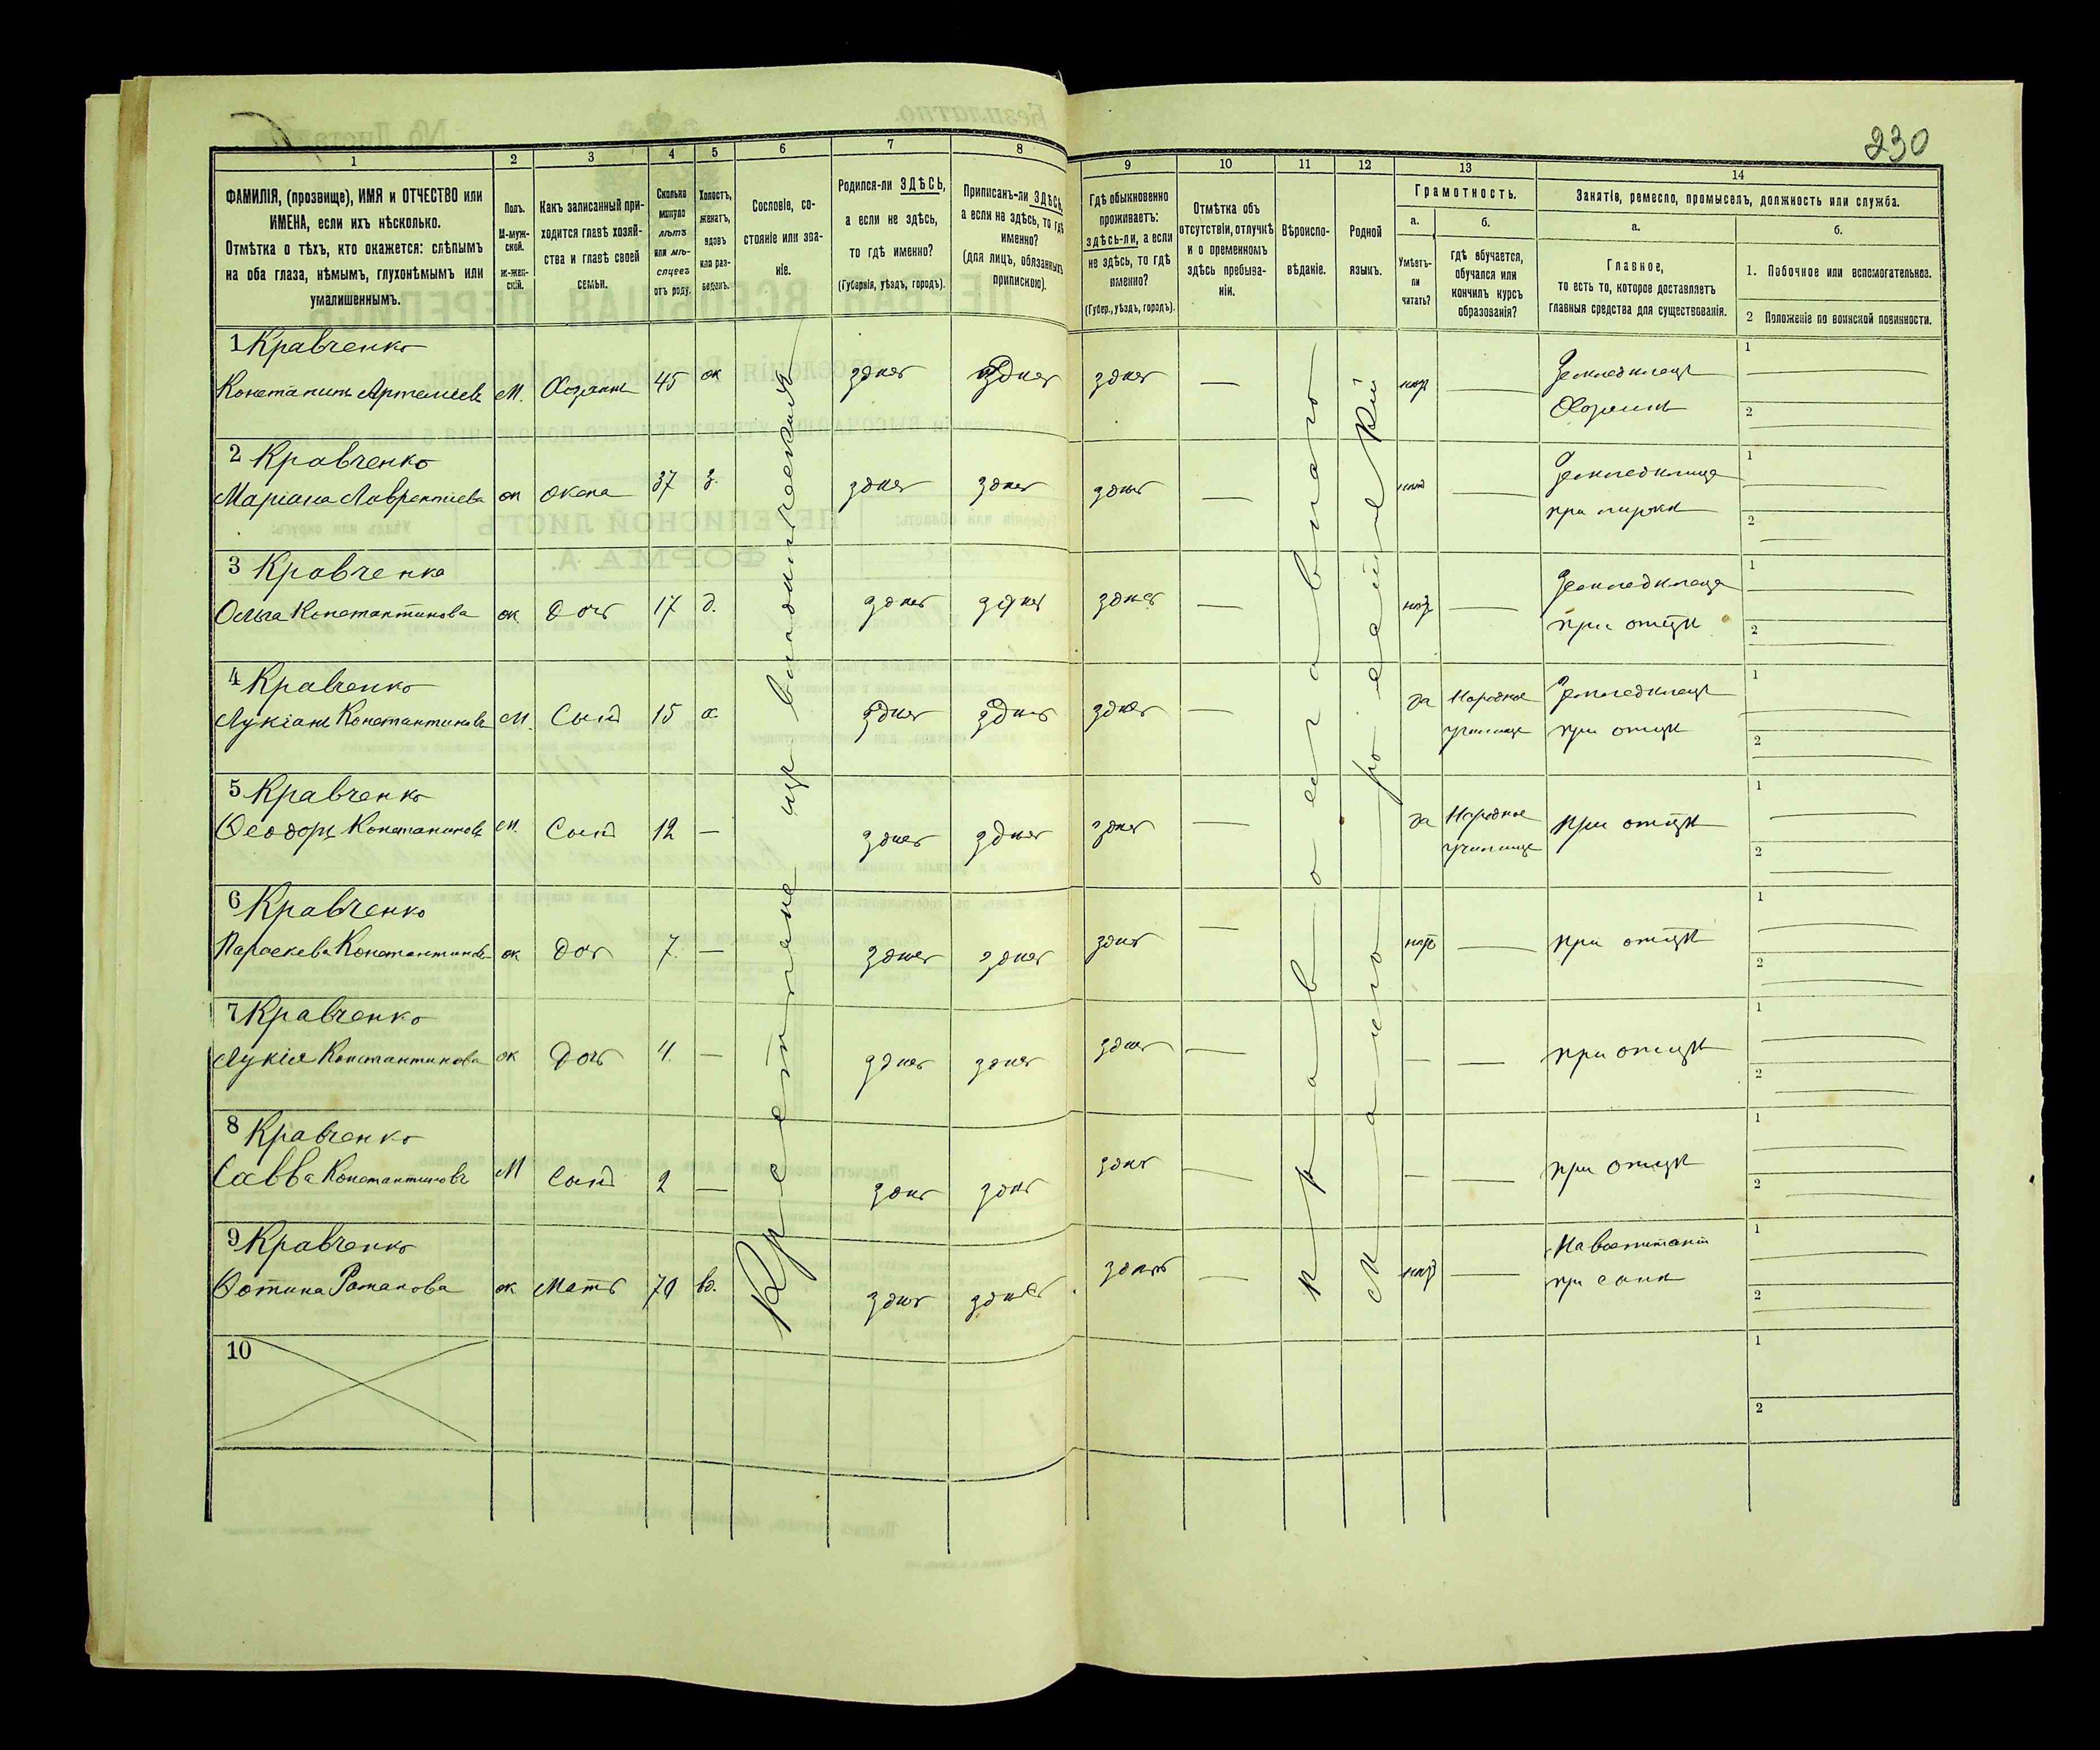 230
1 2 3 4 5 6 7 8 9 10 11 12 13 14
ФАМИЛІЯ, (прозвище), ИМЯ и ОТЧЕСТВО или
ИМЕНА, если ихъ нѣсколько.
Отмѣтка о тѣхъ, кто окажется: слѣпымъ
на оба глаза, нѣмымъ, глухонѣмымъ или
умалишеннымъ.
Полъ.
М-муж-
ской.
ж-жен-
скій.
Какъ записанный при-
ходится главѣ хозяй-
ства и главѣ своей
семьи.
Сколько
минуло
лѣтъ
или мѣ-
сяцевъ
отъ роду.
Холостъ,
женатъ,
вдовъ
или раз-
веденъ.
Сословіе, со-
стояніе или зва-
ніе.
Родился-ли ЗДѢСЬ,
а если не здѣсь,
то гдѣ именно?
(Губернія, уѣздъ, городъ).
Приписанъ-ли ЗДѢСЬ,
а если не здѣсь, то гдѣ
именно?
(для лицъ, обязанныхъ
припискою).
Гдѣ обыкновенно
проживаетъ:
здѣсь-ли, а если
не здѣсь, то гдѣ
именно?
(Губер., уѣздъ, городъ).
Отмѣтка объ
отсутствіи, отлучкѣ
и о временномъ
здѣсь пребыва-
ніи.
Вѣроиспо-
вѣданіе.
Родной
языкъ.
Грамотность.
а.
Умѣетъ-
ли
читать?
б.
гдѣ обучается,
обучался или
кончилъ курсъ
образованія?
Занятіе, ремесло, промыселъ, должность или служба.
а.
Главное,
то есть то, которое доставляетъ
главныя средства для существованія.
б.
1. Побочное или вспомогательное.
2 Положеніе по воинской повинности.
Крестьяне изъ владѣльческихъ
православнаго
малороссійскій
1 Кравченко
Константинъ Артемьевъ М. Хозяинъ 45 ж здѣсь здѣсь здѣсь — нѣтъ — Земледѣлецъ
Хозяинъ
1
2
2 Кравченко
Маріана Лаврентіева ж жена 37 з. здѣсь здѣсь здѣсь — нѣтъ — Земледѣлица
при мужѣ
1
2
3 Кравченко
Ольга Константинова ж Дочь 17 д. здѣсь здѣсь здѣсь — нѣтъ — Земледѣлица
при отцѣ
1
2
4 Кравченко
Лукіанъ Константиновъ М. Сынъ 15 х. здѣсь здѣсь здѣсь — да Народное
училище
Земледѣлецъ
при отцѣ
1
2
5 Кравченко
Ѳеодоръ Константиновъ М. Сынъ 12 — здѣсь здѣсь здѣсь — да Народное
училище
при отцѣ
1
2
6 Кравченко
Параскева Константинова ж Дочь 7 — здѣсь здѣсь здѣсь — нѣтъ — при отцѣ
1
2
7 Кравченко
Лукія Константинова ж Дочь 4 — здѣсь здѣсь здѣсь — — — при отцѣ
1
2
8 Кравченко
Савва Константиновъ М Сынъ 2 — здѣсь здѣсь здѣсь — — — при отцѣ
1
2
9 Кравченко
Фотина Романова ж Мать 70 вд. здѣсь здѣсь здѣсь — нѣтъ —
при сынѣ
1
2
10
1
2